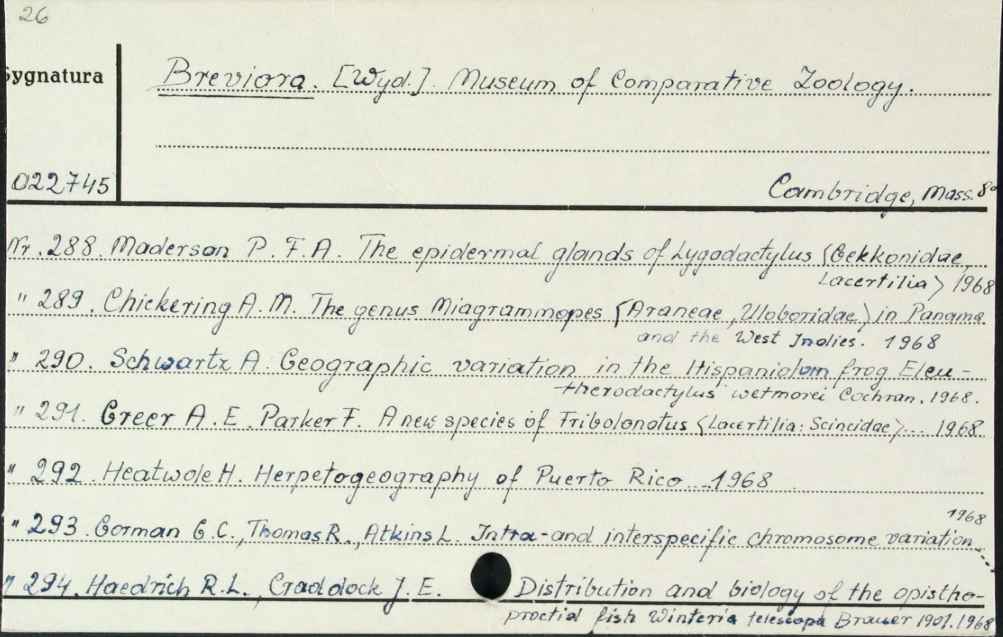 26
Sygnatura
Breviora. [Wyd.]. Museum of Comparative Zoology.
022745
Cambridge, Mass. 8°
Nr. 288. Maderson P. F. A. The epidermal glands of Lygodactylus (Gekkonidae,
Lacertilia) 1968
" 289. Chickering A. M. The genus Miagrammopes (Araneae, Uloboridae) in Panama
and the West Indies. 1968
" 290. Schwartz A. Geographic variation in the Hispaniolan frog Eleu-
therodactylus wetmorei Cochran. 1968.
" 291. Greer A. E. Parker F. A new species of Tribolonotus (Lacertilia: Scincidae)... 1968
" 292. Heatwole H. Herpetogeography of Puerto Rico ... 1968
1968
" 293. Gorman G. C., Thomas R., Atkins L. Intra- and interspecific chromosome variation...
" 294. Haedrich R. L., Craddock J. E. Distribution and biology of the opistho-
proctid fish Winteria telescopa Brauer 1901. 1968